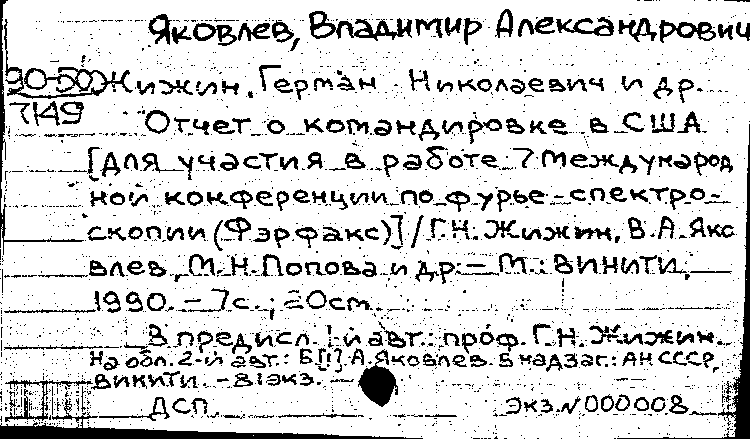 Яковлев, Владимир Александрович
90-50 Жижин, Герман Николаевич и др.
7149
Отчет о командировке в США
[для участия в работе 7 Международ
ной конференции по фурье-спектро-
скопии (Фэрфакс)] / Г.Н. Жижин, В.А. Яко
влев, М.Н. Попова и др. – М.: ВИНИТИ,
1990. – 7с.; 20см.
В предисл. 1-й авт.: проф. Г.Н. Жижин.
На обл. 2-й авт.: Б[!] А. Яковлев. В надзаг.: АН СССР,
ВИНИТИ. – 81экз. –
ДСП. Экз. N 000008.